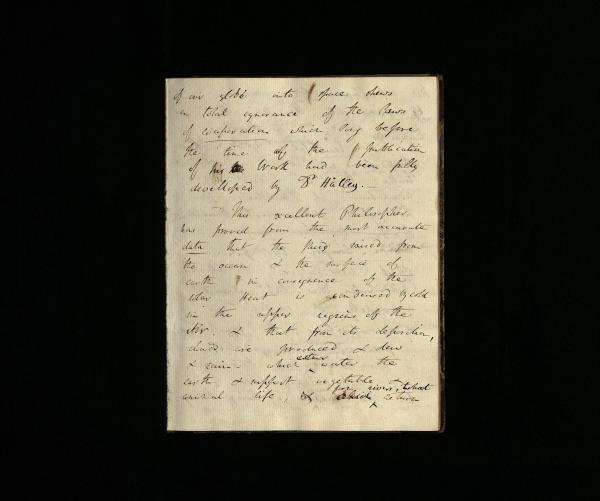 of our globe into space shews
a total ignorance of the Laws
of evaporation which long before
the time of the publication
of his Work had been fully
developed by Dr Halley.
This excellent Philosopher
has proved from the most accurate
data that the fluid raised from
the ocean & the surface of
earth in consequence of the
solar Heat is condensed by cold
in the upper regions of the
Air. & that from its deposition,
clouds are produced & dew
& rain - which either water the
earth & support vegetable &
animal life, & form rivers, & that
which return